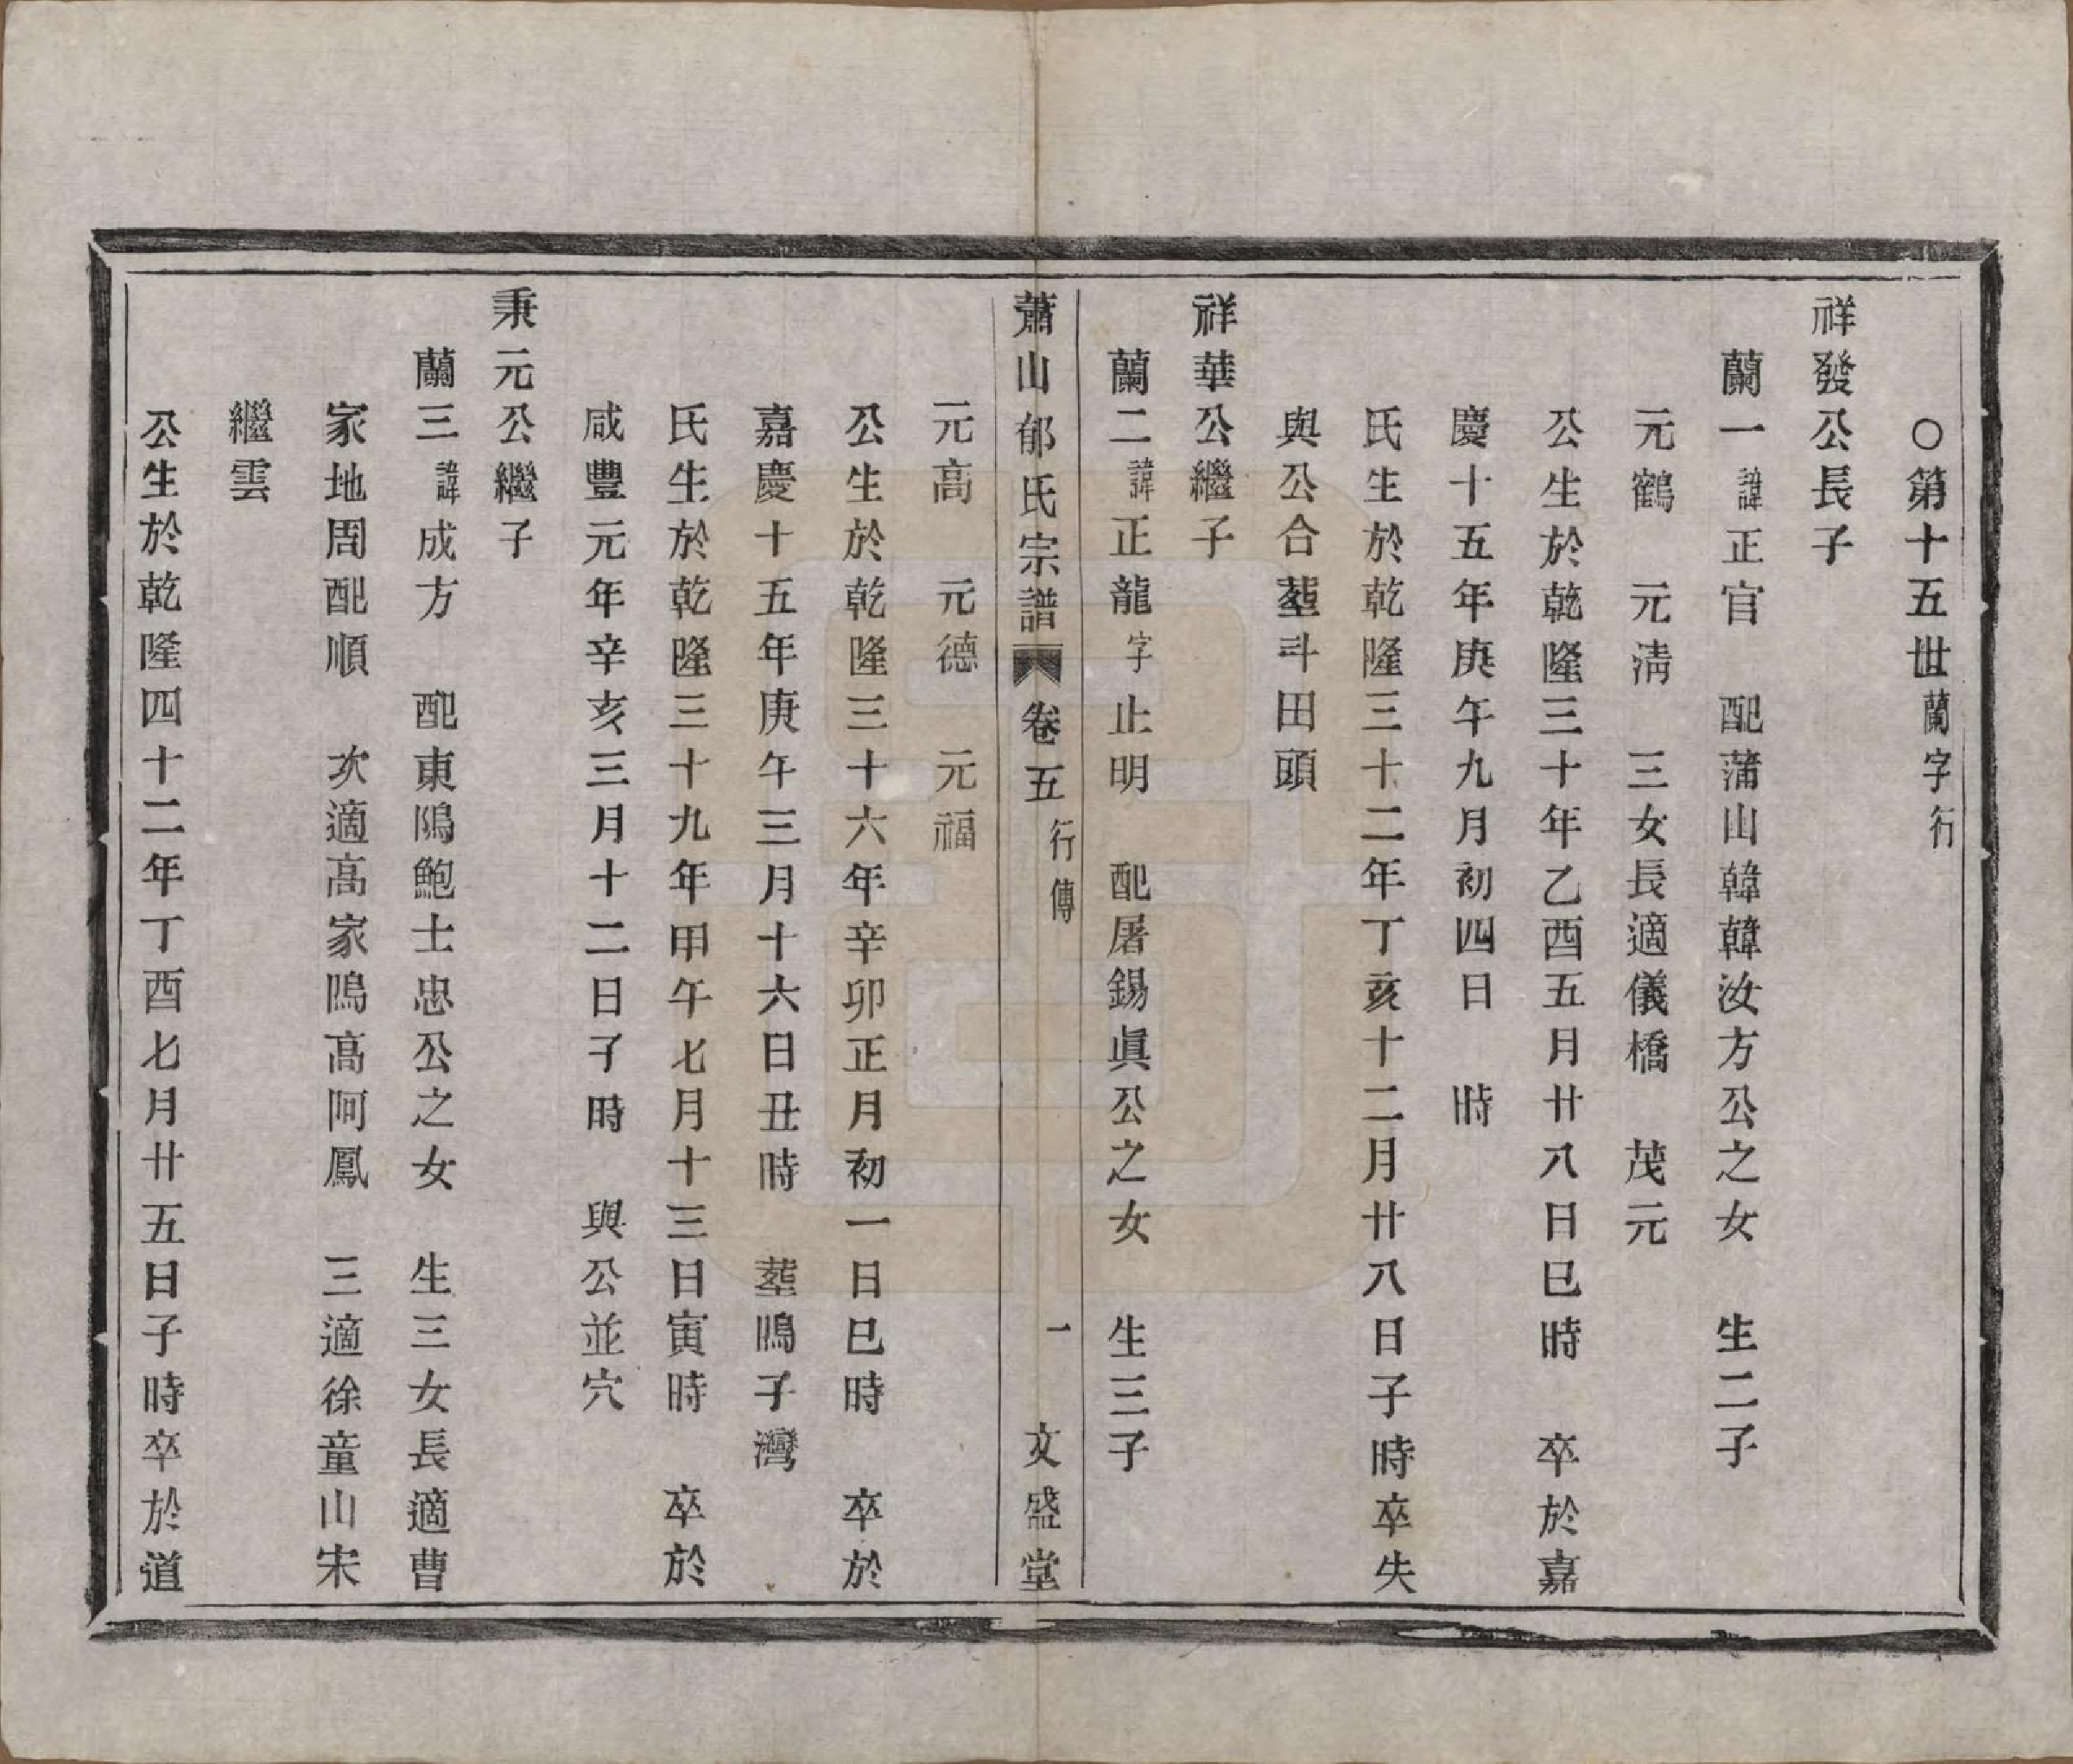 ○第十五世蘭字行
祥發公長子
蘭一諱正官　配蒲山韓韓汝方公之女　生二子
元鶴　元淸　三女長適儀橋　茂元
公生於乾隆三十年乙酉五月廿八日巳時　卒於嘉
慶十五年庚午九月初四日　時
氏生於乾隆三十二年丁亥十二月廿八日子時卒失
與公合塟斗田頭
祥華公繼子
蘭二諱正龍字止明　配屠錫眞公之女　生三子
蕭山郁氏宗譜　卷五　行傳　一　文盛堂
元高　元德　元福
公生於乾隆三十六年辛卯正月初一日巳時　卒於
嘉慶十五年庚午三月十六日丑時　塟鳴子灣
氏生於乾隆三十九年甲午七月十三日寅時　卒於
咸豐元年辛亥三月十二日子時　與公並穴
秉元公繼子
蘭三諱成方　配東隝鮑士忠公之女　生三女長適曹
家地周配順　次適高家隝高阿鳳　三適徐童山宋
繼雲
公生於乾隆四十二年丁酉七月廿五日子時卒於道